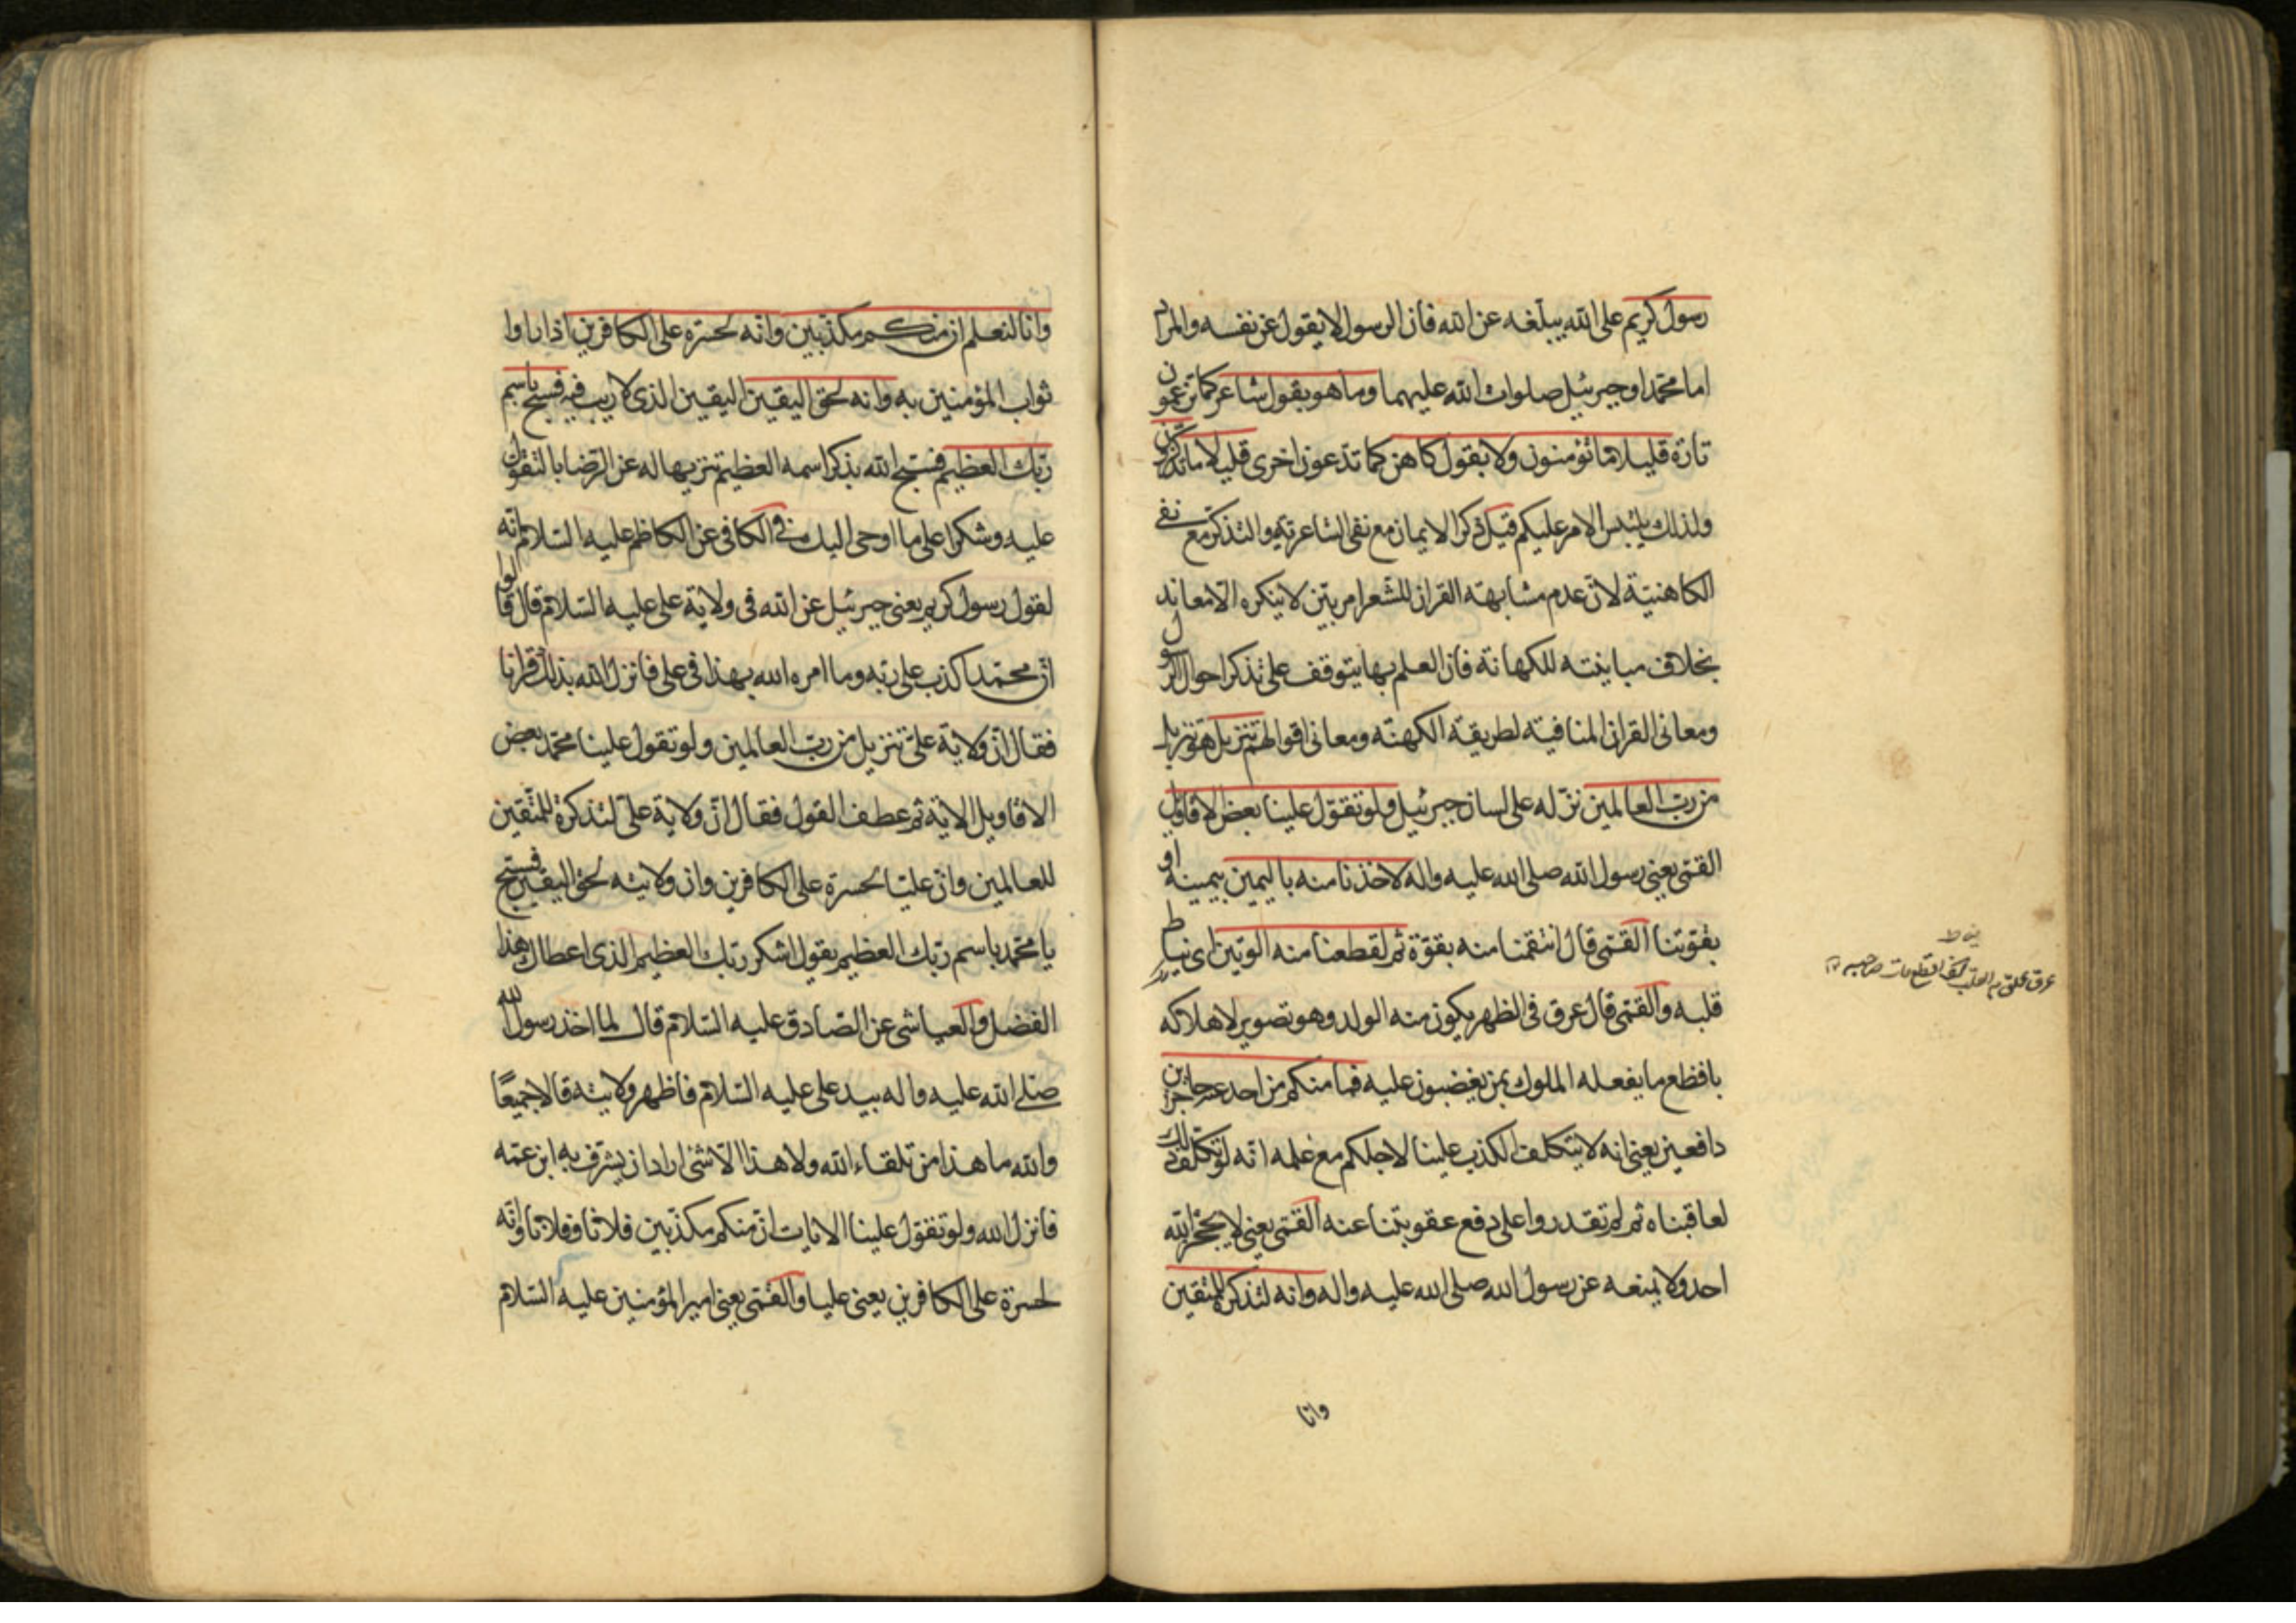 رسول كريم على الله يبلغه عن الله فان الرسول لا يقول عن نفسه والمراد
اما محمد او جبرئيل صلوات الله عليهما وما هو بقول شاعر كما تزعمون
تارة قليلا ما تؤمنون ولا بقول كاهن كما تدعون اخرى قليلا ما تذكرون
ولذلك يلتبس الامر عليكم قيل ذكر الايمان مع نفي الشاعرية والتذكر مع نفي
الكاهنية لان عدم مشابهة القران للشعر امر بين لا ينكره الا معاند
بخلاف مباينته للكهانة فان العلم بها يتوقف على تذكر احوال الرسول
ومعاني القران المنافية لطريقة الكهنة ومعاني اقوالهم تنزيل هو تنزيل
من رب العالمين نزله على لسان جبرئيل ولو تقول علينا بعض الاقاويل
القمّي يعني رسول الله صلى الله عليه واله لاخذنا منه باليمين بيمينه او
بقوتنا القمّي قال انتقمنا منه بقوة ثم لقطعنا منه الوتين اي نياط
قلبه والقمّي قال عرق في الظهر يكون منه الولد وهو تصوير لاهلاكه
بافظع ما يفعله الملوك بمن يغضبون عليه فما منكم من احد عنه حاجزين
دافعين يعني انه لا يتكلف الكذب علينا لاجلكم مع علمه انه لو تكلف ذلك
لعاقبناه ثم لم تقدروا على دفع عقوبتنا عنه القمّي يعني لا يحجز الله
احد ولا يمنعه عن رسول الله صلى الله عليه واله وانه لتذكرة للمتقين
وانا
نياط
وانا لنعلم ان منكم مكذبين وانه لحسرة على الكافرين اذا راوا
ثواب المؤمنين به وانه لحق اليقين اليقين الذي لا ريب فيه فسبح باسم
ربك العظيم فسبح الله بذكر اسمه العظيم تنزيها له عن الرضا بالتقول
عليه وشكرا على ما اوحى اليك في الكافي عن الكاظم عليه السلام انه
لقول رسول كريم يعني جبرئيل عن الله في ولاية علي عليه السلام قال قالوا
ان محمدا كذب على ربه وما امره الله بهذا في علي فانزل الله بذلك قرانا
فقال ان ولاية علي تنزيل من رب العالمين ولو تقول علينا محمد بعض
الاقاويل الاية ثم عطف القول فقال ان ولاية علي لتذكرة للمتقين
للعالمين وان عليا لحسرة على الكافرين وان ولايته لحق اليقين فسبح
يا محمد باسم ربك العظيم يقول اشكر ربك العظيم الذي اعطاك هذا
الفضل والعياشي عن الصادق عليه السلام قال لما اخذ رسول الله
صلى الله عليه واله بيد علي عليه السلام فاظهر ولايته قالا جميعًا
والله ما هذا من تلقاء الله ولا هذا الا شئ اراد ان يشرف به ابن عمه
فانزل الله ولو تقول علينا الايات ان منكم مكذبين فلانا وفلانا وانه
لحسرة على الكافرين يعني عليا والقمّي يعني امير المؤمنين عليه السلام